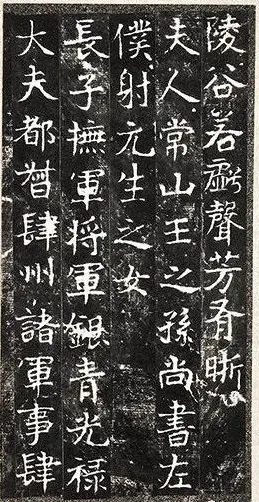 陵谷若虧聲芳有晰
夫人常山王之孫尚書左
僕射元生之女
長子撫軍将軍銀青光禄
大夫都督肆州諸軍事肆